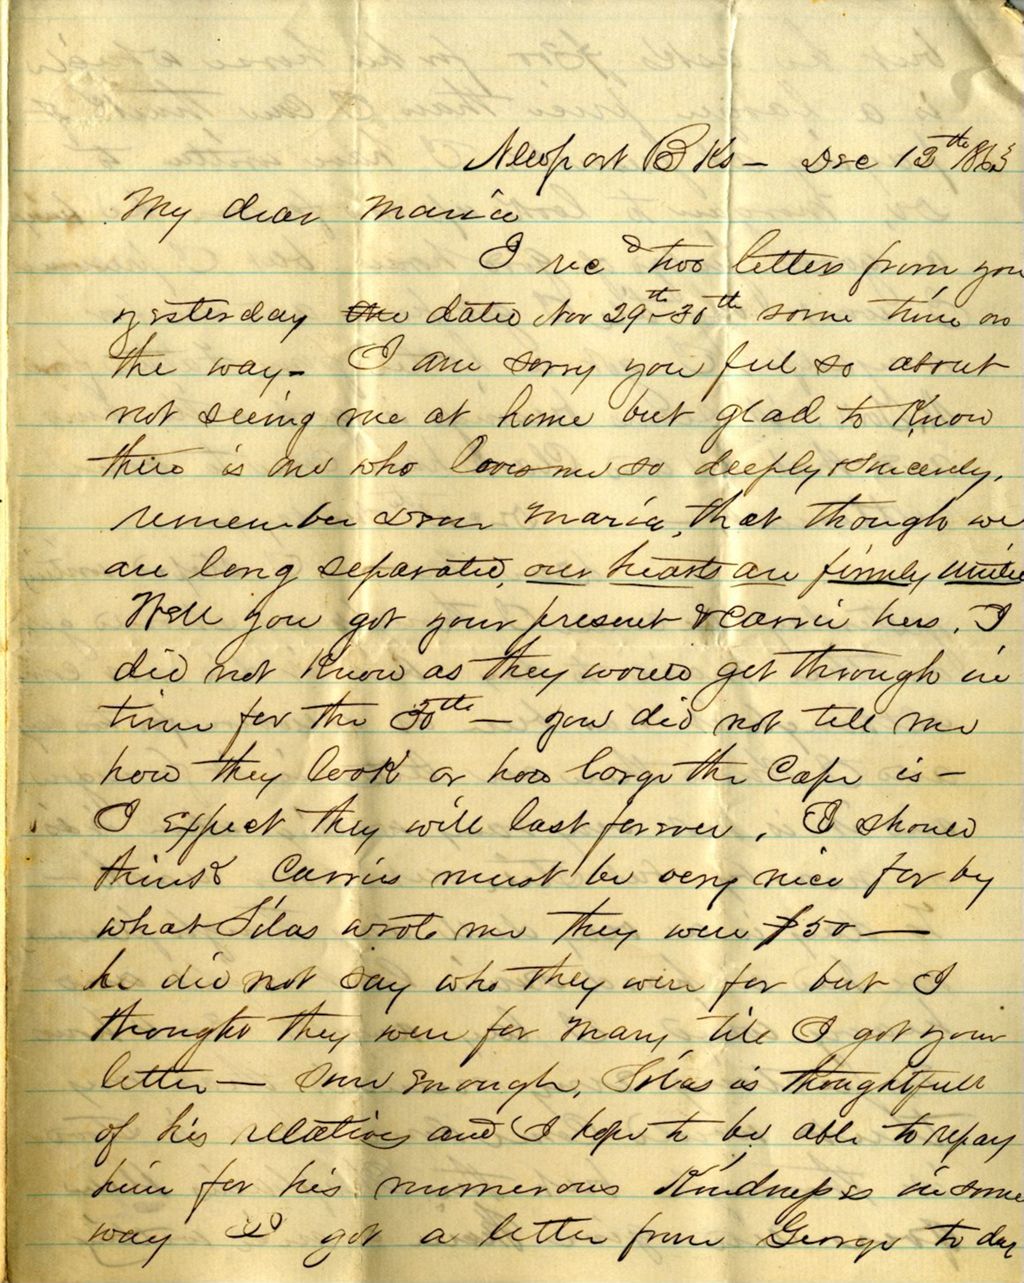 Newport Bks - Dec 13th 1863
My dear Maria
I recd two letters from you
yesterday the dated Nov 29th - 30th some time on
the way - I am sorry you feel so about
not seeing me at home but glad to Know
there is one who loves me so deeply & sincerely.
remember Dear Maria, that though we
are long separated, our hearts are firmly united
Well you got your present & Carrie hers. I
did not Know as they would get through in
time for the 30th - you did not tell me
how they look or how large the Cape is -
I Expect they will last forever, I should
think Carries must be very nice for by
what Silas wrote me they were $50 -
he did not say who they were for but I
thought they were for Mary till I got your
letter - Sure Enough, Silas is thoughtfull
of his relatives and I hope to be able to repay
him for his numerous Kindnesses in some
way I got a letter from George to day